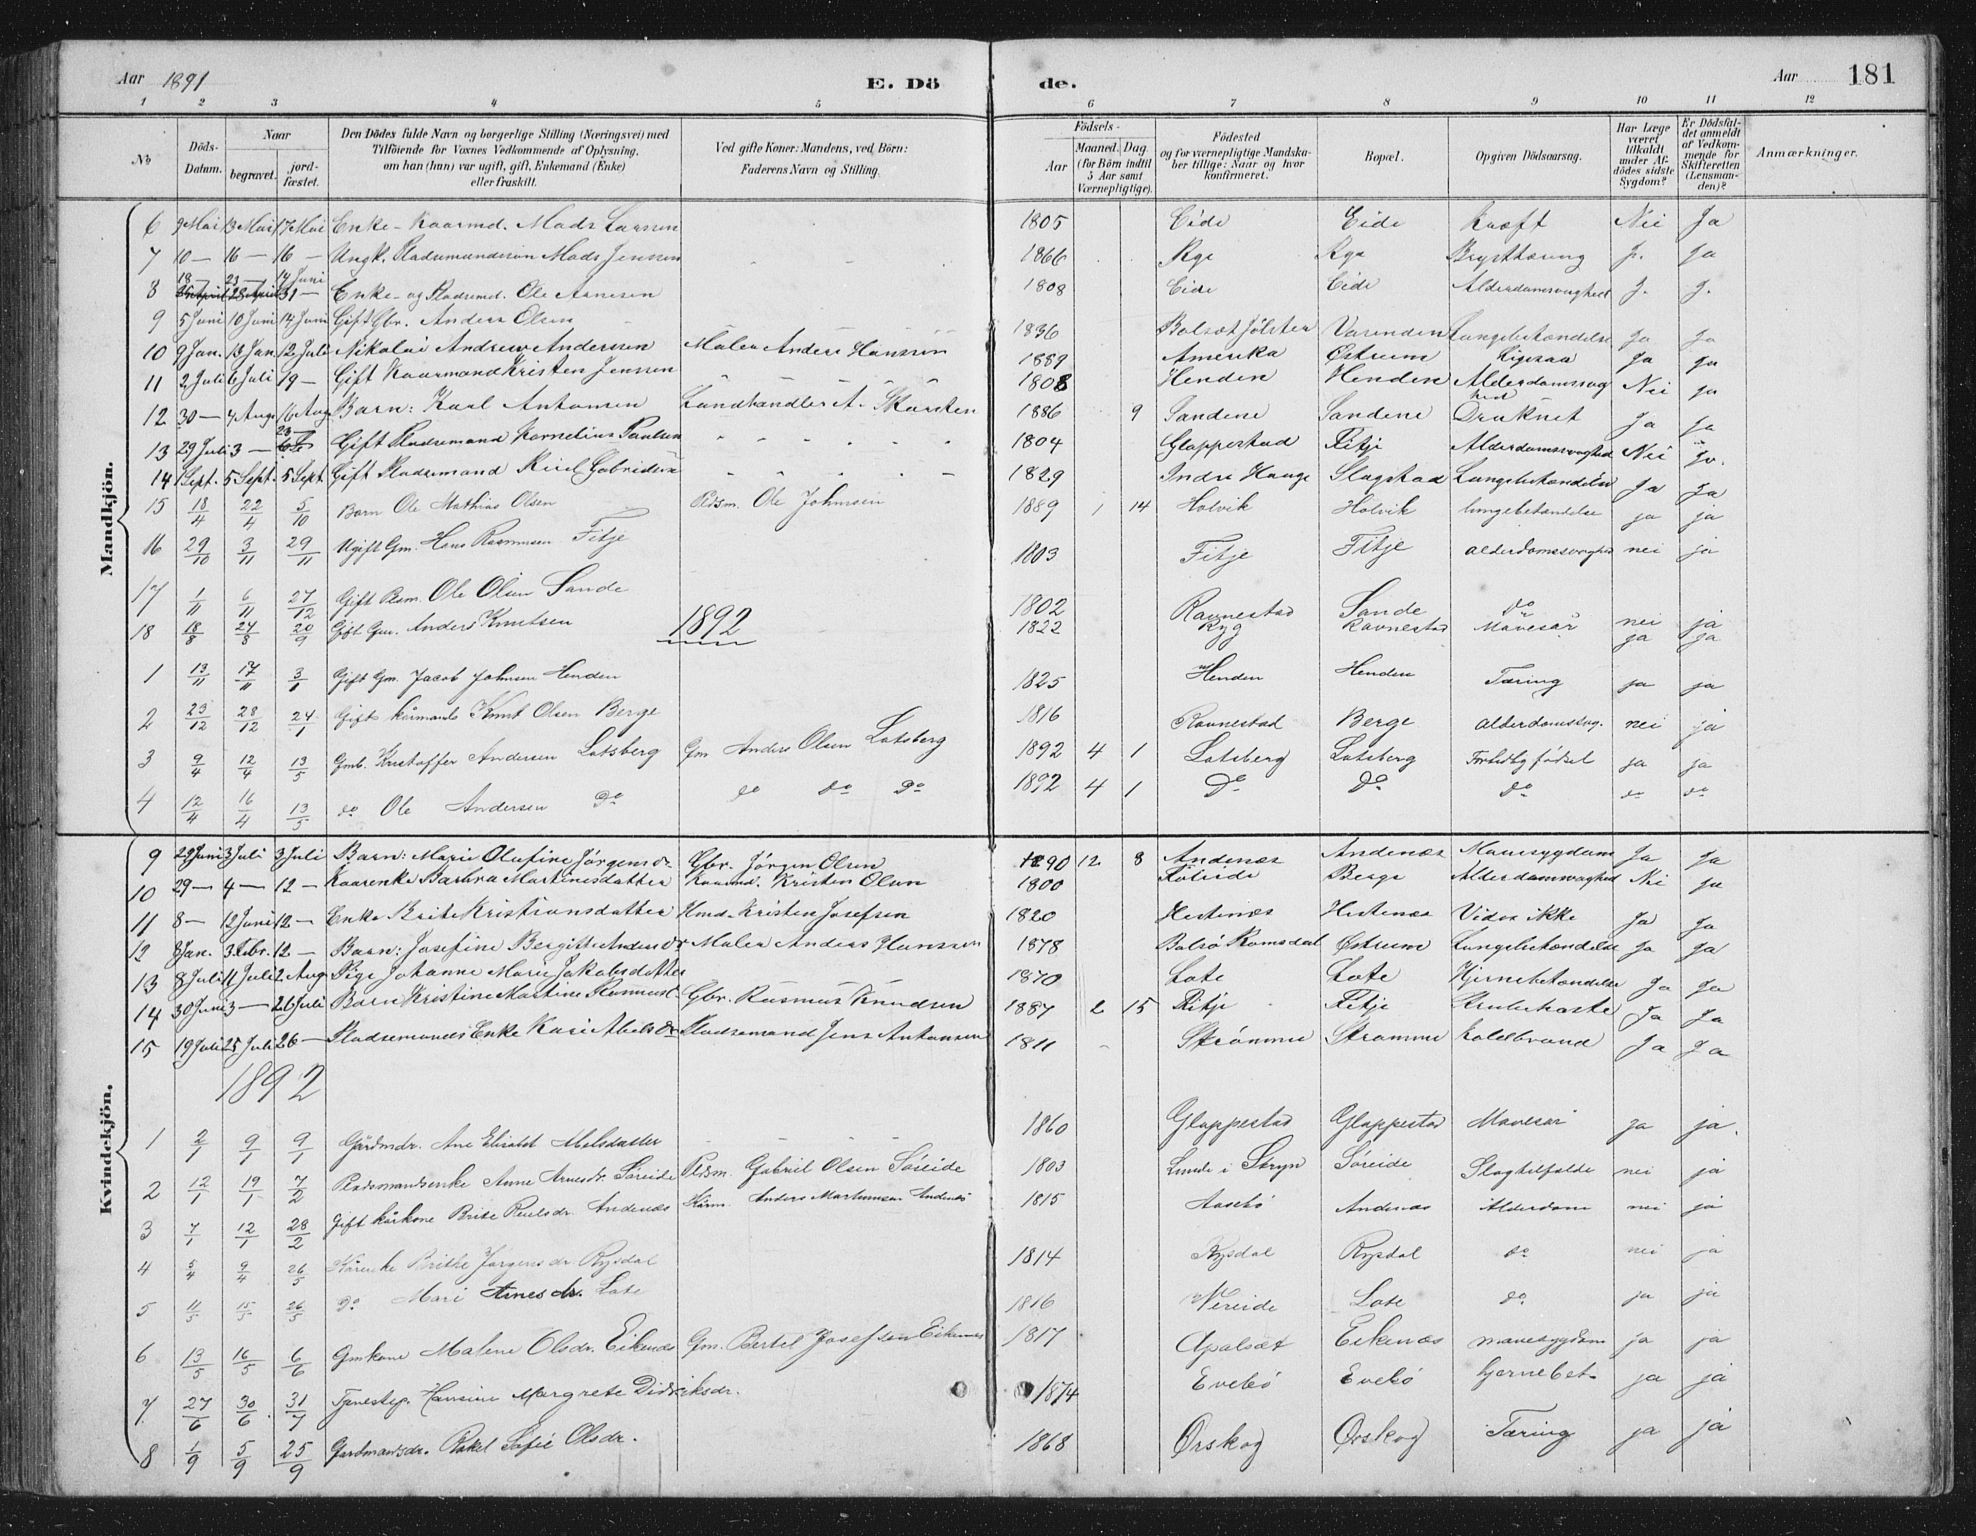 Aar 1891 E. Dö de. Aar 181
1 2 3 4 5 6 7 8 9 10 11 12
No
Döds-Datum.
Naar
begravet. jordfæstet.
Den Dödes fulde Navn og borgerlige Stilling (Næringsvei) med Tilföiende for Voxnes Vedkommende af Oplysning, om han (hun) var ugift, gift, Enkemand (Enke) eller fraskilt.
Ved gifte Koner: Mandens, ved Börn: Faderens Navn og Stilling.
Födsels-
Aar Maaned. Dag.
(for Börn indtil 5 Aar samt Værnepligtige).
Födested og for værnepligtige Mandskaber tillige: Naar og hvor konfirmeret.
Bopæl.
Opgiven Dödsaarsag.
Har Læge været tilkaldt under Afdödes sidste Sygdom?
Er Dödsfaldet anmeldt af Vedkommende for Skifteretten (Lensmanden)?
Anmærkninger.
Mandkjön.
6 9 Mai 13 Mai 17 Mai Enke-Kaarmd. Mads Larsen 1805 Eide Eide Kræft Nei Ja
7 10 — 16 — 16 — Ungk. Pladsemandssön Mads Jensen 1866 Ryg Ryg Brysttæring J. Ja
8 18 — 23 — 14 Juni 31 — Enke- og Pladsemd. Ole Arnesen 1808 Eide Eide Alderdomssvaghed J. J.
9 5 Juni 10 Juni 14 Juni Gift Gbr. Anders Olsen 1836 Bolsæt Jölster Varenden Lungebetændelse Ja Ja
10 9 Jan. 13 Jan. 12 Juli Nikolai Andreas Anderssen Maler Anders Hanssen 1889 Amerika Østrum Ligesaa Ja Ja
11 2 Juli 6 Juli 19 — Gift Kaarmand Kristen Jenssen 1808 Henden Henden Alderdomssvaghed Nei Ja
12 30 — 4 Aug. 16 Aug. Barn: Karl Antonsen Landhandler A. Skarsten 1886 9 Sandene Sandene Druknet Ja Ja
13 29 Juli 3 — 23 — Gift Pladsemand Kornelius Paulsen 1804 Gloppestad Fitje Alderdomssvaghed Nei Ja
14 1 Sept. 5 Sept. 5 Sept. Gift Pladsemand Reiel Gabrielsen 1829 Indre Hauge Slagstad Lungebetændelse Ja Ja
15 18/4 22/4 5/10 Barn Ole Mathias Olsen Pldsm. Ole Johnsen 1889 1 14 Holvik Holvik lungebetændelse ja ja
16 29/10 3/11 29/11 Ugift Gm. Hans Rasmusen Fitje 1803 Fitje Fitje alderdomssvaghed nei ja
17 1/11 6/11 27/12 Gift Plsm. Ole Olsen Sande 1802 Ravnestad Sande do nei ja
18 18/8 24/8 20/9 Gift Gm. Anders Knutsen 1822 Ryg Ravnestad Mavesår ja ja
1892
1 13/11 17/11 3/1 Gift Gm. Jacob Johnsen Henden 1825 Henden Henden Tæring ja ja
2 23/12 28/12 24/1 Gift kårmand Knut Olsen Berge 1816 Ravnestad Berge alderdomssvag. nei ja
3 9/4 12/4 13/5 Gmb. Kristoffer Andersen Lotsberg Gm Anders Olsen Lotsberg 1892 4 1 Lotsberg Lotsberg Fortidlig födsel ja ja
4 12/4 16/4 13/5 do Ole Andersen Do do do Do 1892 4 1 Do Do Do do do
Kvindekjön.
9 29 Juni 3 Juli 3 Juli Barn: Marie Olufine Jörgensdr. Gbr. Jörgen Olsen 1890 12 8 Andenæs Andenæs Mavesygdom Ja Ja
10 29 — 4 — 12 — Kaarenke Barbra Martinesdatter Kaarmd. Kristen Olsen 1800 Berge Alderdomssvaghed Nei Ja
11 8 — 12 Juni 12 — Enke Brite Kristiansdatter Hmd. Kristen Josefsen 1820 Hestenæs Hestenæs Vides ikke Ja Ja
12 8 Jan. 3 Febr. 12 — Barn: Josefine Bergitte Andersdr Maler Anders Hanssen 1878 Bolsö Romsdal Østrum Lungebetændelse Ja Ja
13 8 Juli 11 Juli 2 Aug Pige Johanne Marie Jakobsdatter 1870 Lote Lote Hjernebetændelse Ja Ja
14 30 Juni 3 — 26 Juli Barn Kristine Martine Rasmusd. Gbr. Rasmus Knudsen 1887 2 15 Fitje Fitje Strubehoste Ja Ja
15 19 Juli 25 Juli 26 — Pladsemands Enke Kari Abelsdr Pladsemand Jens Antonsen 1811 Strømme Strømme Koldbrand Ja Ja
1892
1 2/1 9/1 9/1 Gårdmdr. Ane Elisabet Abelsdatter 1860 Gloppestad Gloppestad Mavesår ja ja.
2 12/1 19/1 7/2 Pladsmandsenke Anne Arnesdr. Söreide Pldsm. Gabriel Olsen Söreide 1803 Lunde i Stryn Söreide Slagtilfælde nei ja
3 7/1 12/1 28/2 Gift kårkone Brite Reielsdr. Andenæs Kårm. Anders Martinusen Andenæs 1815 Aasebö Andenæs Alderdom nei ja
4 5/4 9/4 26/5 Kårenke Brithe Jorgensdr. Rysdal 1814 Rysdal Rysdal do nei ja
5 11/5 15/5 26/5 Do Mari Arnesdr. Lote 1816 Nereide Lote do ja ja
6 13/5 16/5 6/6 Gmkone Malene Olsdr. Eikenæs Gm. Bertel Josefsen Eikenæs 1817 Apalsæt Eikenæs mavesygdom ja ja
7 27/6 30/6. 31/7 Tjenestep. Hansine Margrete Didriksdr. 1874 Evebö Evebö hjernebet. ja ja
8 1/9 5/9 25/9 Gardmandsdr. Rakel Sofie Olsdr. 1868 Ørskog Ørskog Tæring ja ja